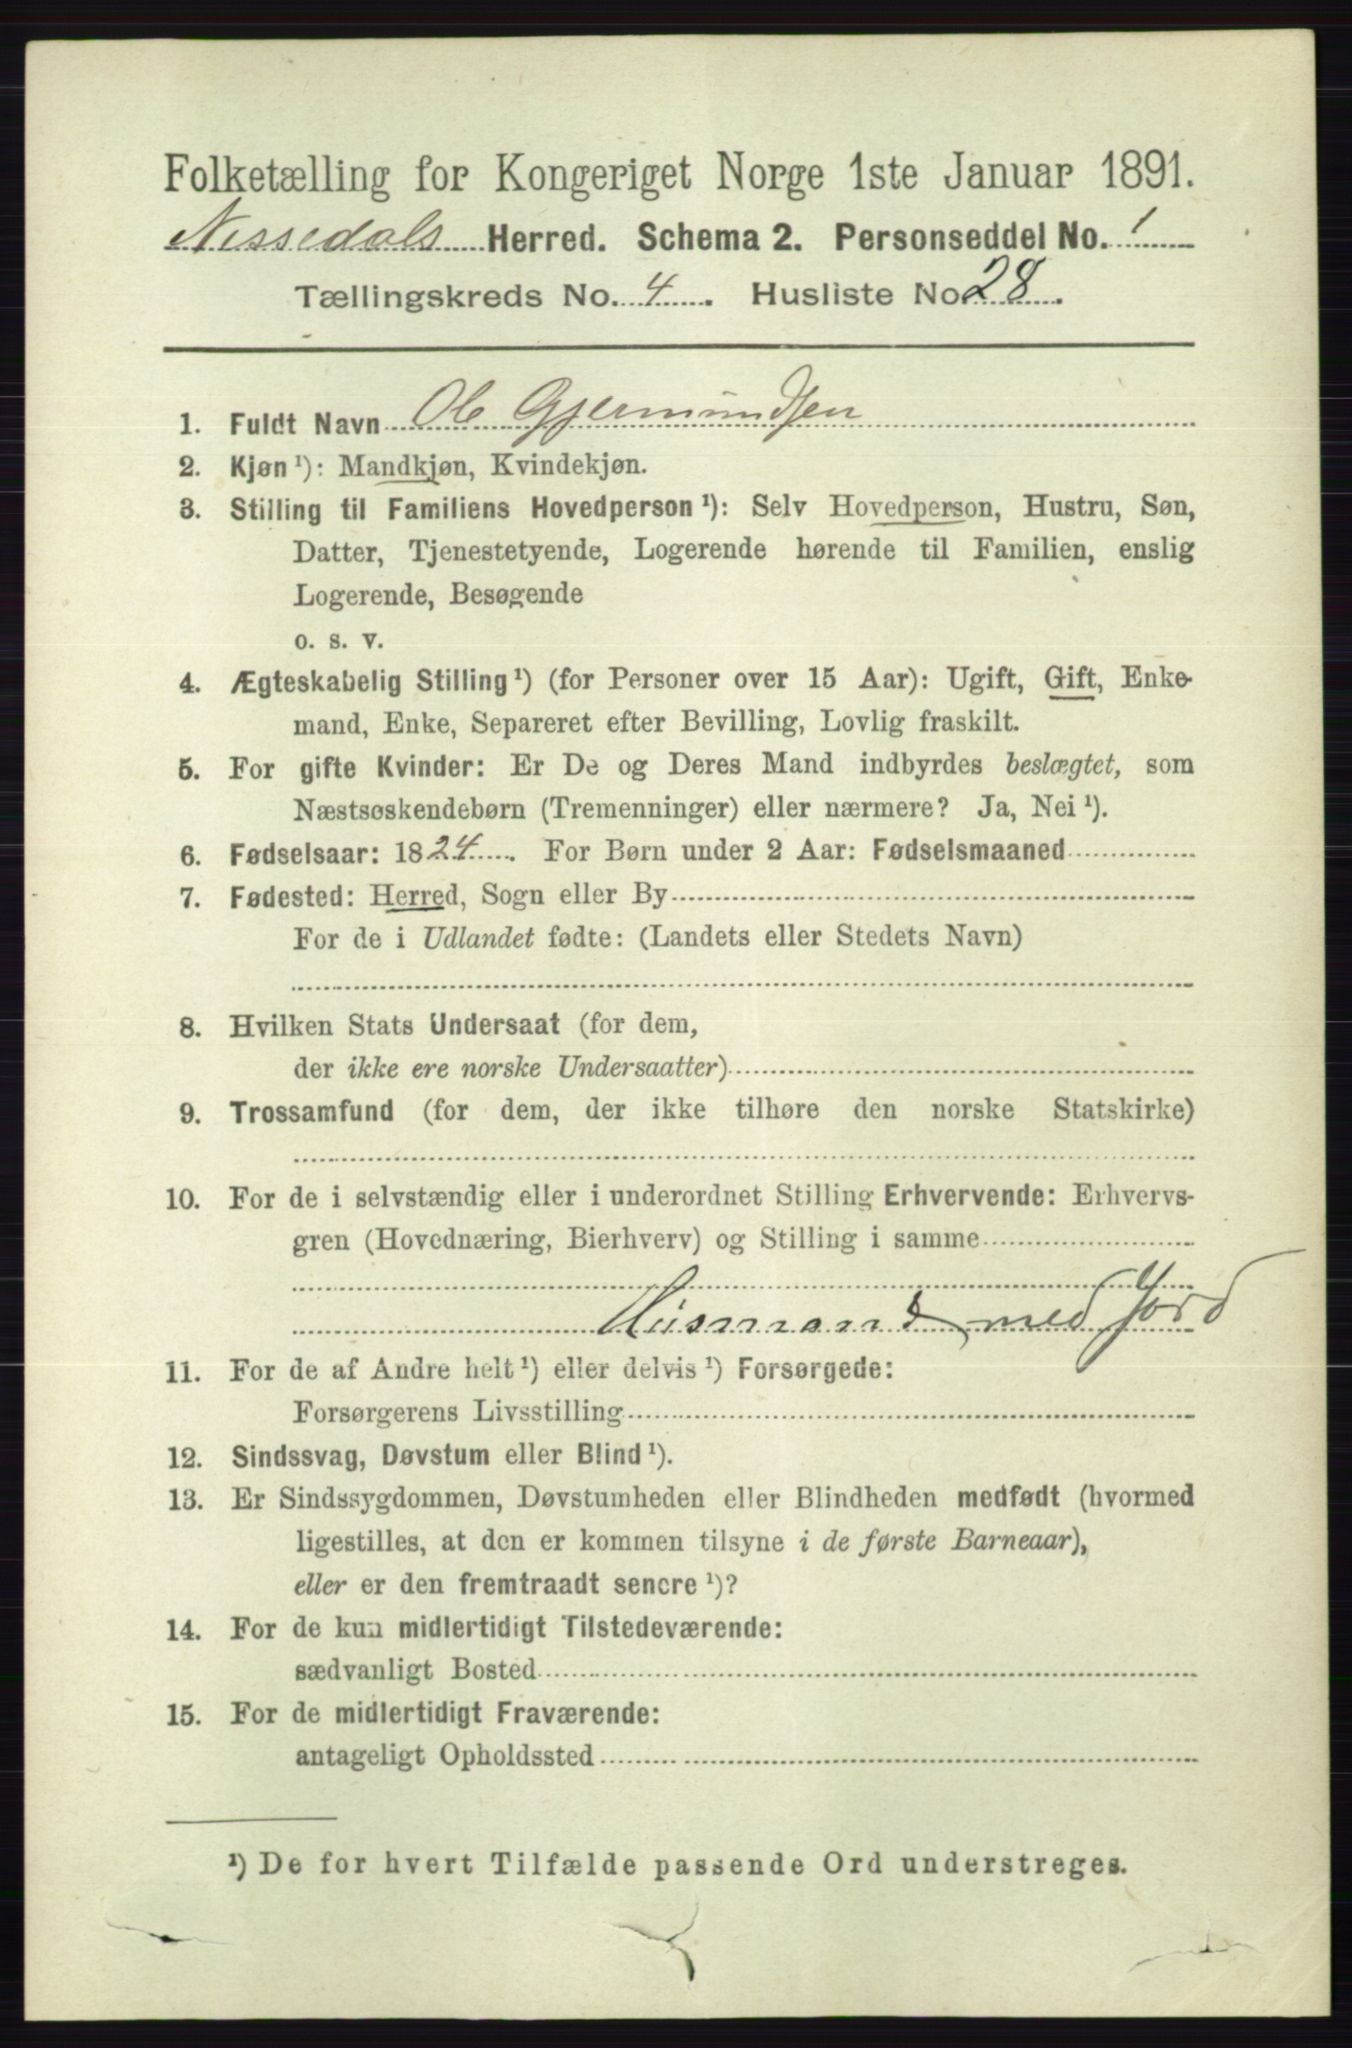 Folketælling for Kongeriget Norge 1ste Januar 1891.
Nissedals Herred. Schema 2. Personseddel No. 1
Tællingskreds No. 4. Husliste No. 28.
1. Fuldt Navn Ole Gjermundsen
2. Kjøn ¹): Mandkjøn, Kvindekjøn.
3. Stilling til Familiens Hovedperson ¹): Selv Hovedperson, Hustru, Søn,
Datter, Tjenestetyende, Logerende hørende til Familien, enslig
Logerende, Besøgende
o. s. v.
4. Ægteskabelig Stilling ¹) (for Personer over 15 Aar): Ugift, Gift, Enke-
mand, Enke, Separeret efter Bevilling, Lovlig fraskilt.
5. For gifte Kvinder: Er De og Deres Mand indbyrdes beslægtet, som
Næstsøskendebørn (Tremenninger) eller nærmere? Ja, Nei ¹).
6. Fødselsaar: 1824. For Børn under 2 Aar: Fødselsmaaned
7. Fødested: Herred, Sogn eller By
For de i Udlandet fødte: (Landets eller Stedets Navn)
8. Hvilken Stats Undersaat (for dem,
der ikke ere norske Undersaatter)
9. Trossamfund (for dem, der ikke tilhøre den norske Statskirke)
10. For de i selvstændig eller i underordnet Stilling Erhvervende: Erhvervs-
gren (Hovednæring, Bierhverv) og Stilling i samme
Husmand med Jord
11. For de af Andre helt ¹) eller delvis ¹) Forsørgede:
Forsørgerens Livsstilling
12. Sindssvag, Døvstum eller Blind ¹).
13. Er Sindssygdommen, Døvstumheden eller Blindheden medfødt (hvormed
ligestilles, at den er kommen tilsyne i de første Barneaar),
eller er den fremtraadt senere ¹)?
14. For de kun midlertidigt Tilstedeværende:
sædvanligt Bosted
15. For de midlertidigt Fraværende:
antageligt Opholdssted
¹) De for hvert Tilfælde passende Ord understreges.